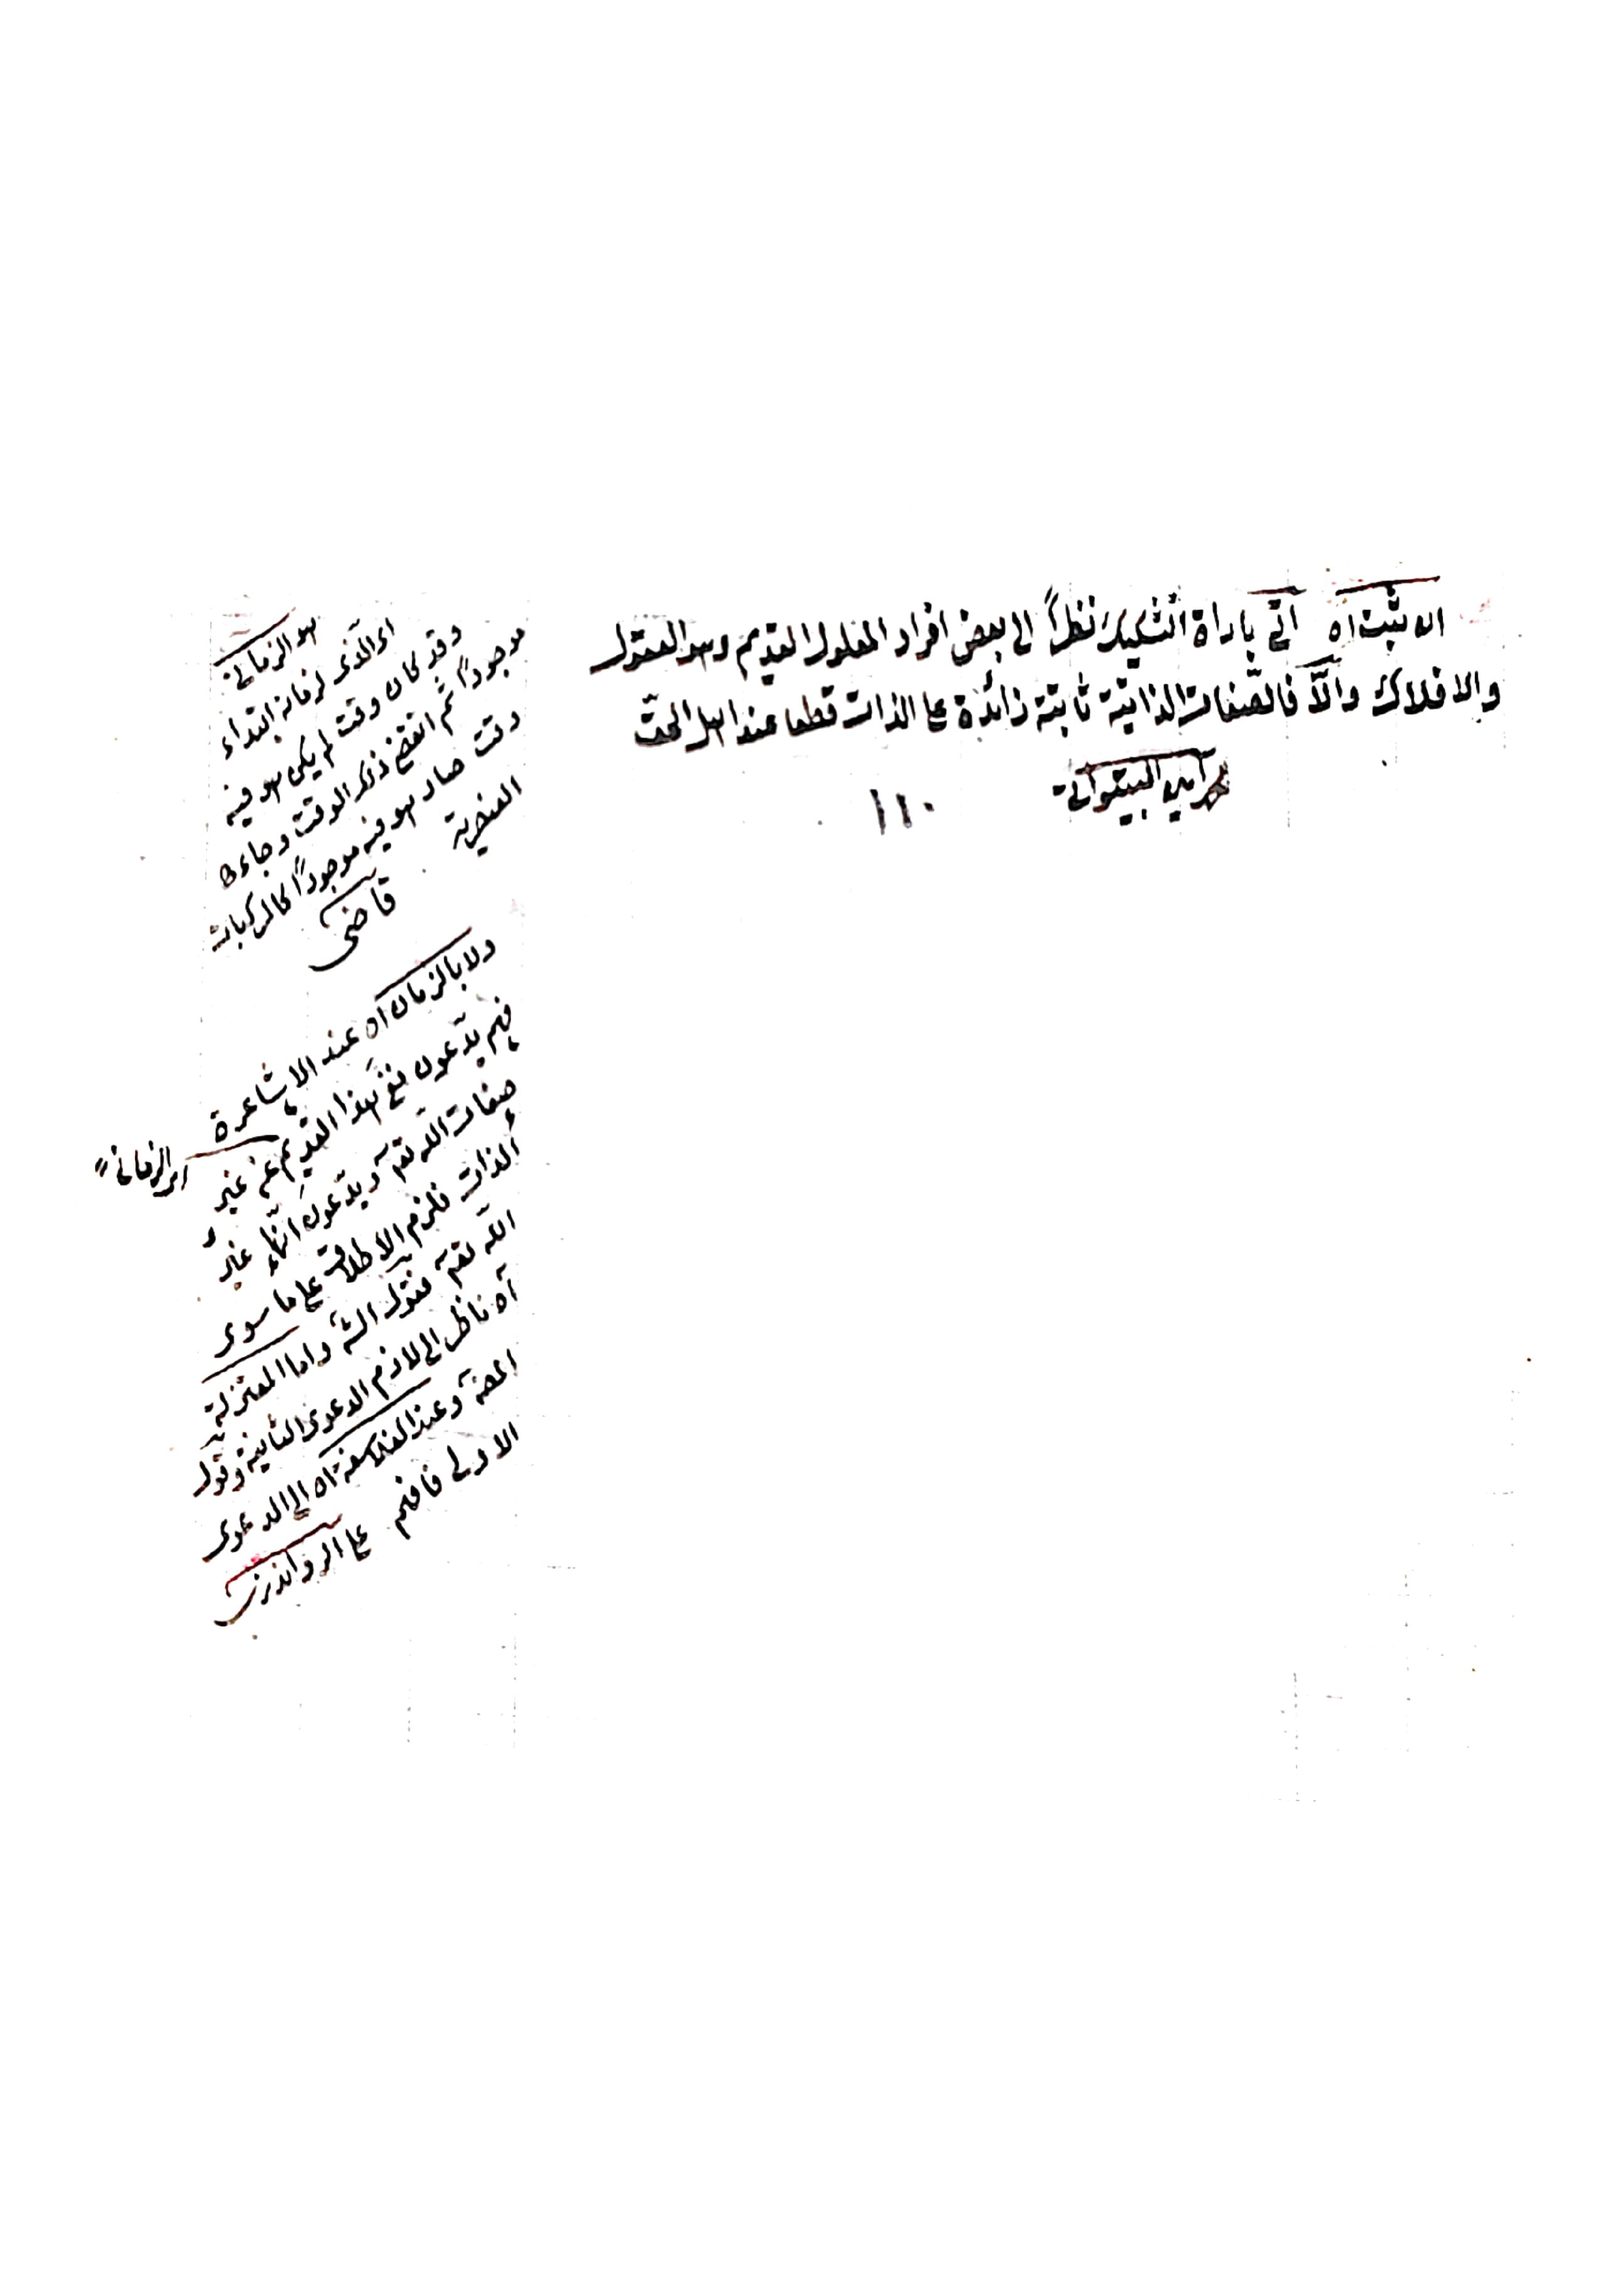 ان ثبت اه اتى باداة التشكيك نظراً الى بعض افراد المعلول القديم وهو العقول
والافلاك والّا فالصّفات الذاتيّة ثابتة زائدة على الذات قطعا عند اهل الحقّ
١١٠
هو الزمانى
اى الذى لزمانه ابتداء
وقد كان وقت لم يكن هو فيه
موجوداً ثم انقضى ذلك الوقت وجاء
وقت صار هو فيه موجوداً كالمركبات
العنصرية
قاضى
ولا بالزمان اه عند الاشاعرة
فهم يدّعون نفى هذا القديم عن غير
اى الزمانى
صفات اللّه تعه ويدّعون انّها غير
الذات فلزم الاطلاق على ما سوى
اللّه تعه فقول الشه واما المعتزلة
اه ناظر الى لازم الدعوى الثانية وقول
المصه وعند الفلاسفة اه الى الدعوى
الاولى فافهم